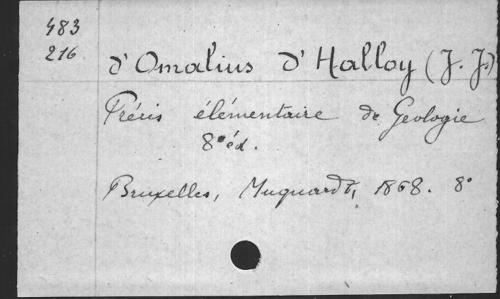 483
216
d'Omalius d'Halloy (J. J.)
Précis élémentaire de Geologie
8e éd.
Bruxelles, Muquardt, 1868. 8°